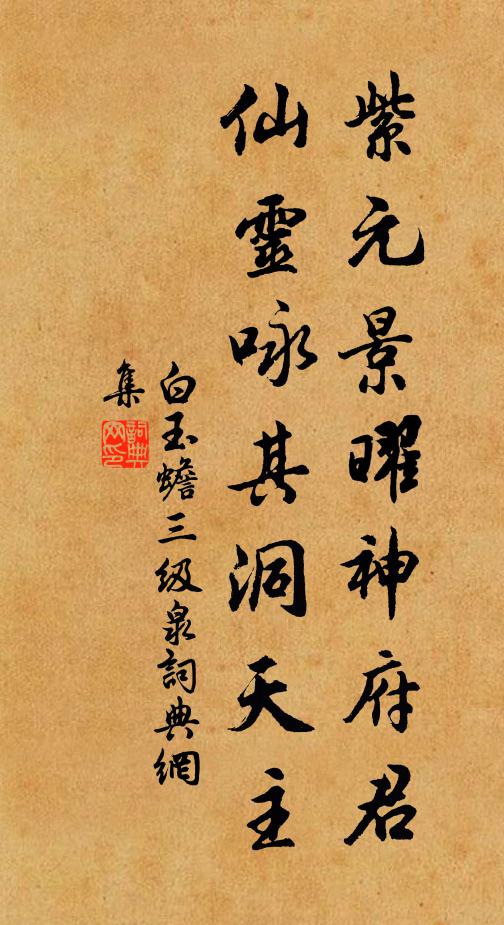 紫元景曜神府君
仙靈咏其洞天主
白玉蟾三级泉詞典網
集
詞典网印